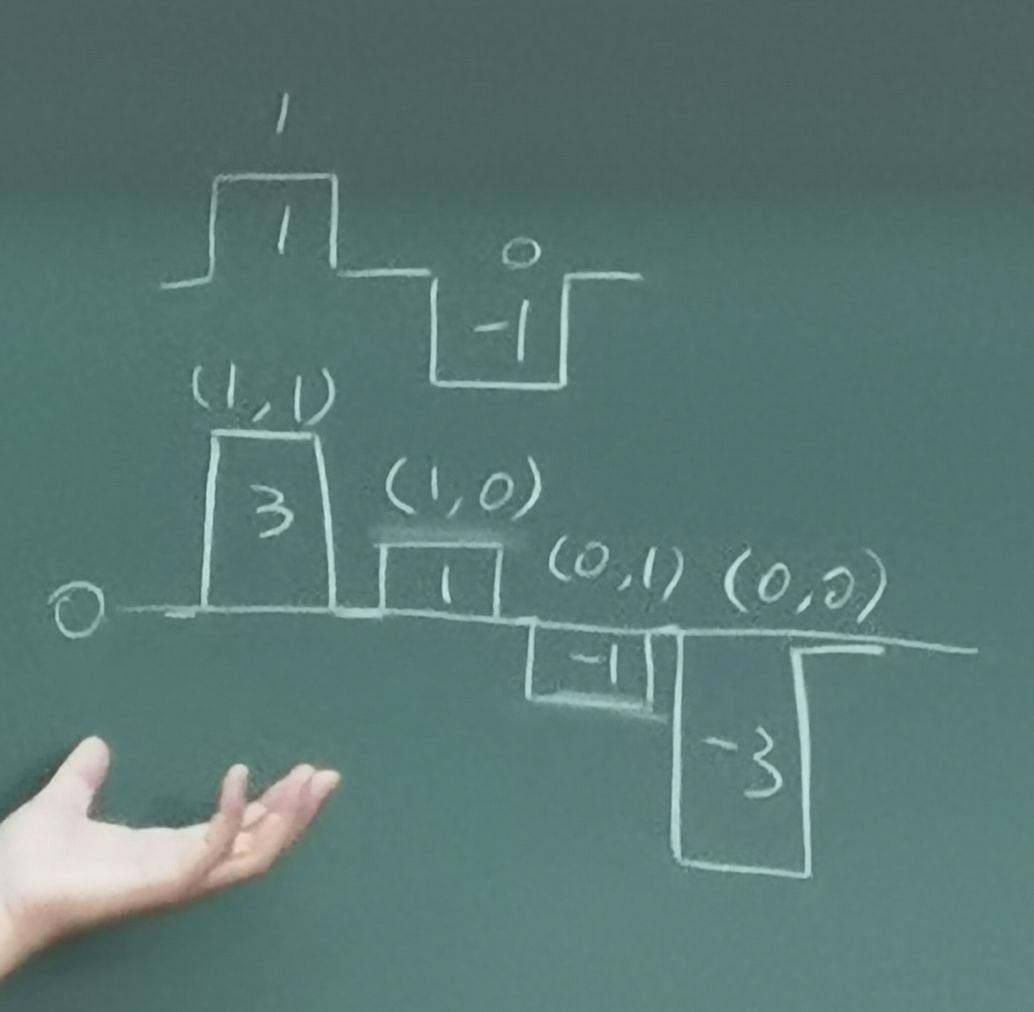 1
1
0
-1
(1,1)
3
(1,0)
1
(0,1) (0,0)
0
-1
-3